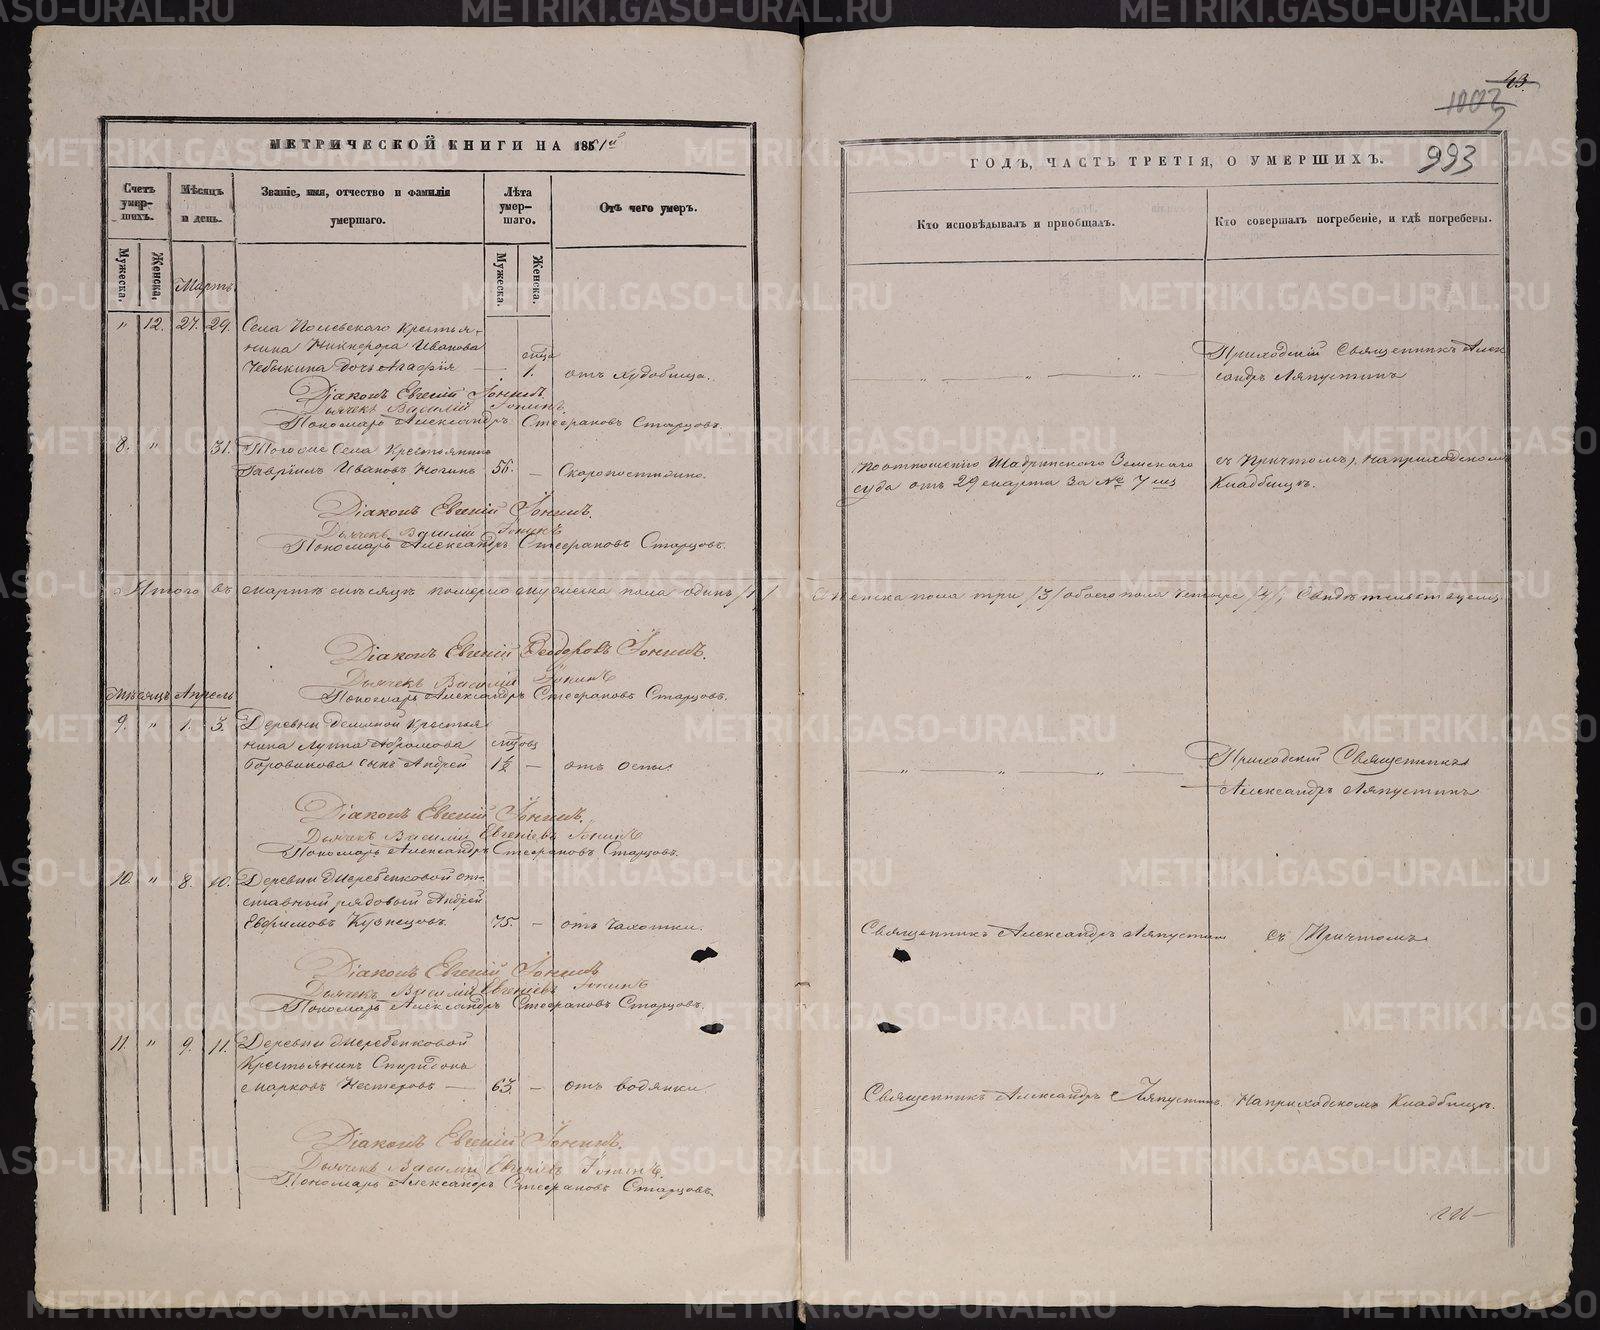 МЕТРИЧЕСКОЙ КНИГИ НА 1851й
Счетъ умер- шихъ.
Мѣсяцъ и день.
Званіе, имя, отчество и фамилія умершаго.
Лѣта умер- шаго.
Отъ чего умеръ.
Мужеска.
Женска.
Мартъ
Мужеска.
Женска.
" 12. 27. 29. Села Крестья-
нина Никифора Иванова мца
Чебыкина дочь Агафія — 1. отъ худобища.
Діаконъ Евгеній Іонинъ.
Дьячекъ Василій Іонинъ.
Пономарь Александръ Стефановъ Старцовъ.
8. " 31. Тогоже Села Крестьянинъ
Гавріилъ Ивановъ 56. — Скоропостижно.
Діаконъ Евгеній Іонинъ.
Дьячекъ Василій Іонинъ
Пономарь Александръ Стефановъ Старцовъ.
Итого въ мартѣ мѣсяцѣ померло мужеска пола одинъ /1/
Діаконъ Евгеній Ѳеодоровъ Іонинъ.
Дьячекъ Василій Іонинъ
Пономарь Александръ Стефановъ Старцовъ.
Мѣсяцъ Апрель
9. " 1. 3. Деревни Крестья
нина Луппа Абрамова мцовъ
Боровикова сынъ Андрей 1½ — отъ оспы.
Діаконъ Евгеній Іонинъ.
Дьячекъ Василій Евгеніевъ Іонинъ
Пономарь Александръ Стефановъ Старцовъ.
10. " 8. 10. Деревни Жеребенковой от-
ставный рядовый Андрей
Ефимовъ Кузнецовъ. 75. — отъ чахотки.
Діаконъ Евгеній Іонинъ
Дьячекъ Василій Евгеніевъ Іонинъ
Пономарь Александръ Стефановъ Старцовъ.
11. " 9. 11. Деревни Жеребенковой
Крестьянинъ Спиридонъ
Марковъ Нестеровъ — 63. — отъ водянки
Діаконъ Евгеній Іонинъ.
Дьячекъ Василій Евгеніевъ Іонинъ.
Пономарь Александръ Стефановъ Старцовъ.
43.
1002
993
ГОДЪ, ЧАСТЬ ТРЕТІЯ, О УМЕРШИХЪ.
Кто исповѣдывалъ и пріобщалъ.
Кто совершалъ погребеніе, и гдѣ погребены.
Приходскій Священникъ Алек
сандръ Ляпустинъ
По отношенію Шадринскаго Земскаго
суда отъ 29 марта за №
съ Причтомъ, на приходскомъ
Кладбищѣ.
Женска пола три /3/ обоего пола четыре /4/, Свидѣтельствуемъ.
Приходскій Священникъ
Александръ Ляпустинъ
Священникъ Александръ Ляпустинъ съ Причтомъ
Священникъ Александръ Ляпустинъ. На приходскомъ Кладбищѣ.
METRIKI.GASO-URAL.RU